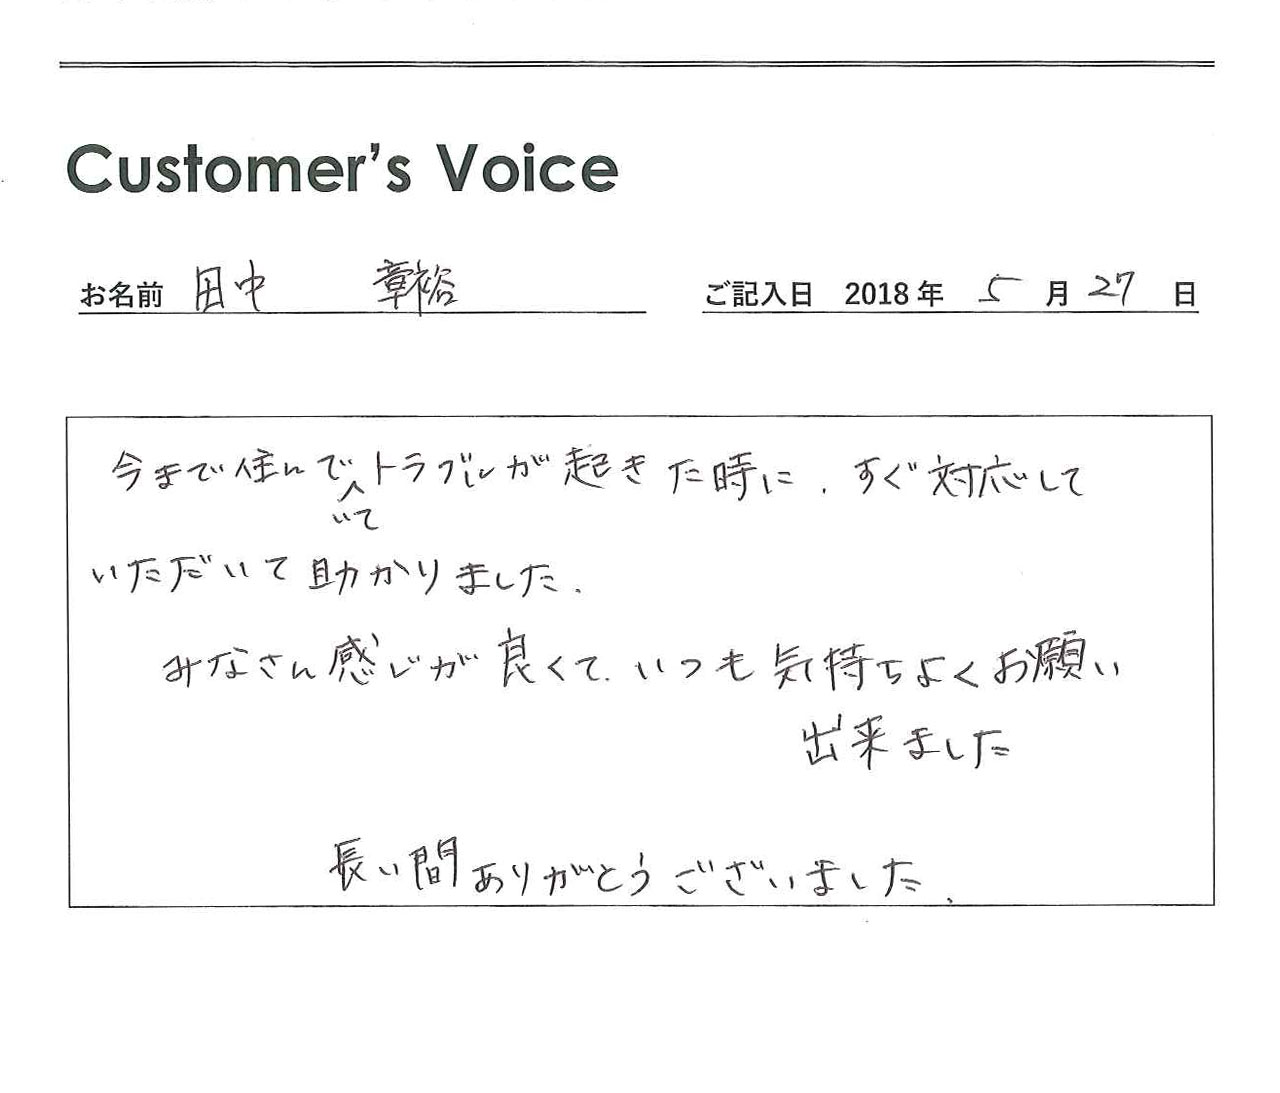 Customer's Voice
お名前 田中 章裕 ご記入日 2018年 5月27日
今まで住んでいてトラブルが起きた時に、すぐ対応して
いただいて助かりました.
みなさん感じが良くて、いつも気持ちよくお願い
出来ました
長い間ありがとうございました.